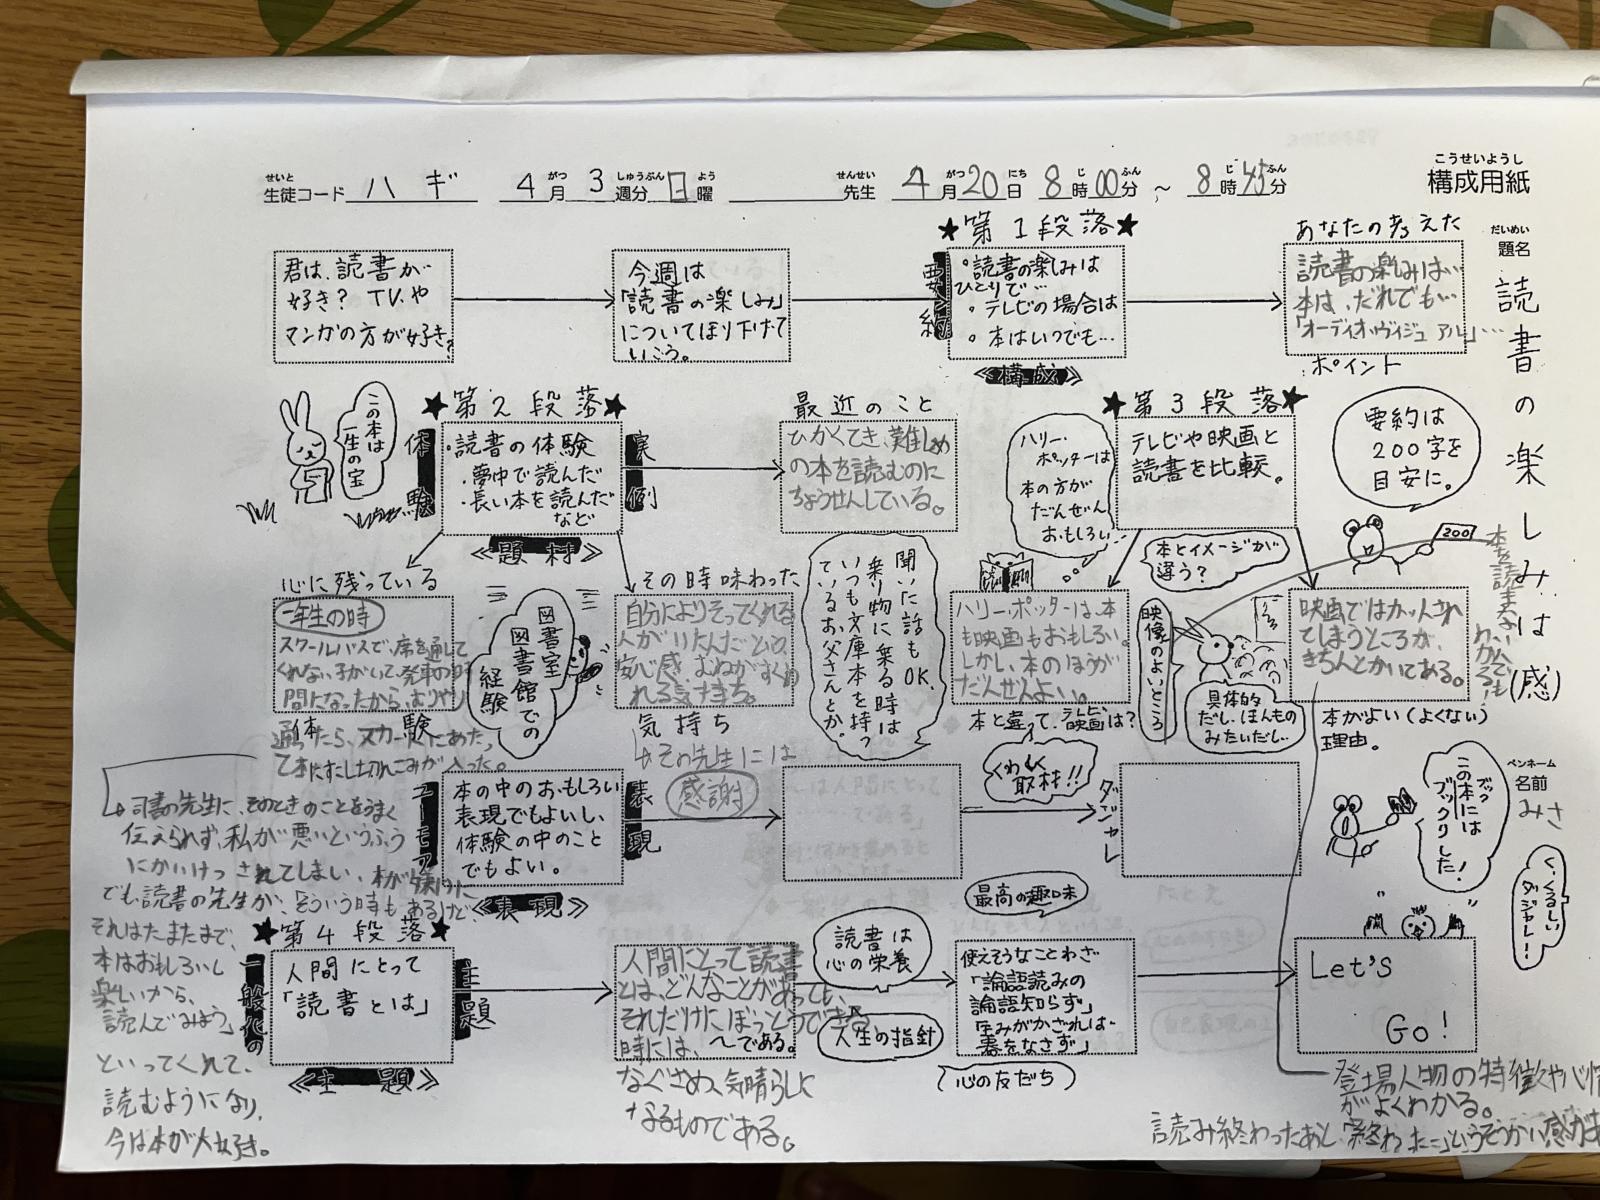 こうせいようし
構成用紙
せいと
生徒コード ハギ 4月 3週分 日曜 先生 4月20日 8時00分 ~ 8時45分
だいめい
題名
読書の楽しみは(感)
ペンネーム
名前
みさ
君は、読書が
好き? TVや
マンガの方が好き?
今週は
「読書の楽しみ」
についてほり下げて
いこう。
★第1段落★
要約
・読書の楽しみは
ひとりで…
・テレビの場合は
・本はいつでも…
《構成》
あなたの考えた
読書の楽しみは…
本は、だれでも…
「オーディオ・ヴィジュアル」…
ポイント
要約は
200字を
目安に。
200
この本は
一生の宝
★第2段落★
体験
実例
・読書の体験
・夢中で読んだ
・長い本を読んだ
など
《題材》
最近のこと
ひかくてき、難しめ
の本を読むのに
ちょうせんしている。
★第3段落★
テレビや映画と
読書を比較。
ハリー・
ポッターは
本の方が
だんぜん
おもしろい
本とイメージが
違う?
心に残っている
一年生の時
スクールバスで、席を通して
くれない子がいて、発車の時
間になったから、むりやり
体験
通ったら、スカートにあたっ
て本にすこし切れこみが入った。
図書室
図書館での
経験
その時味わった
自分によりそってくれる
人がいたんだという
安心感、むねがすく
れる気持ち。
気持ち
その先生には
感謝
聞いた話もOK。
乗り物に乗る時は
いつも文庫本を持っ
ているお父さんとか。
ハリー・ポッターは、本
も映画もおもしろい。
しかし、本のほうが
だんぜんよい。
本と違って、テレビ映画は?
映像のよいところ
具体的
だし、ほんもの
みたいだし…
映画ではカットされ
てしまうところが、
きちんとかいてある。
本がよい(よくない)
理由。
司書の先生に、そのときのことをうまく
伝えられず、私が悪いというふう
にかいけつされてしまい、本が
でも読書の先生が、「そういう時もあるけど、
それはたまたまで、
本はおもしろいし
楽しいから、
読んでみよう」
といってくれて、
読むようになり、
今は本が大好き。
ユーモア
表現
本の中のおもしろい
表現でもよいし、
体験の中のこと
でもよい。
《表現》
くわしく
取材!!
ダジャレ
この本には
ブックリした!
く、くるしい
ダジャレ!
★第4段落★
一般化の
主題
人間にとって
「読書とは」
《主題》
人間にとって読書
とは、どんなことがあっても、
それだけにぼっとうできる
時には、〜である。
なぐさめ、気晴らしに
なるものである。
読書は
心の栄養
最高の趣味
人生の指針
心の友だち
使えそうなことわざ
「論語読みの
論語知らず」
Let's
Go!
登場人物の特徴や心情
がよくわかる。